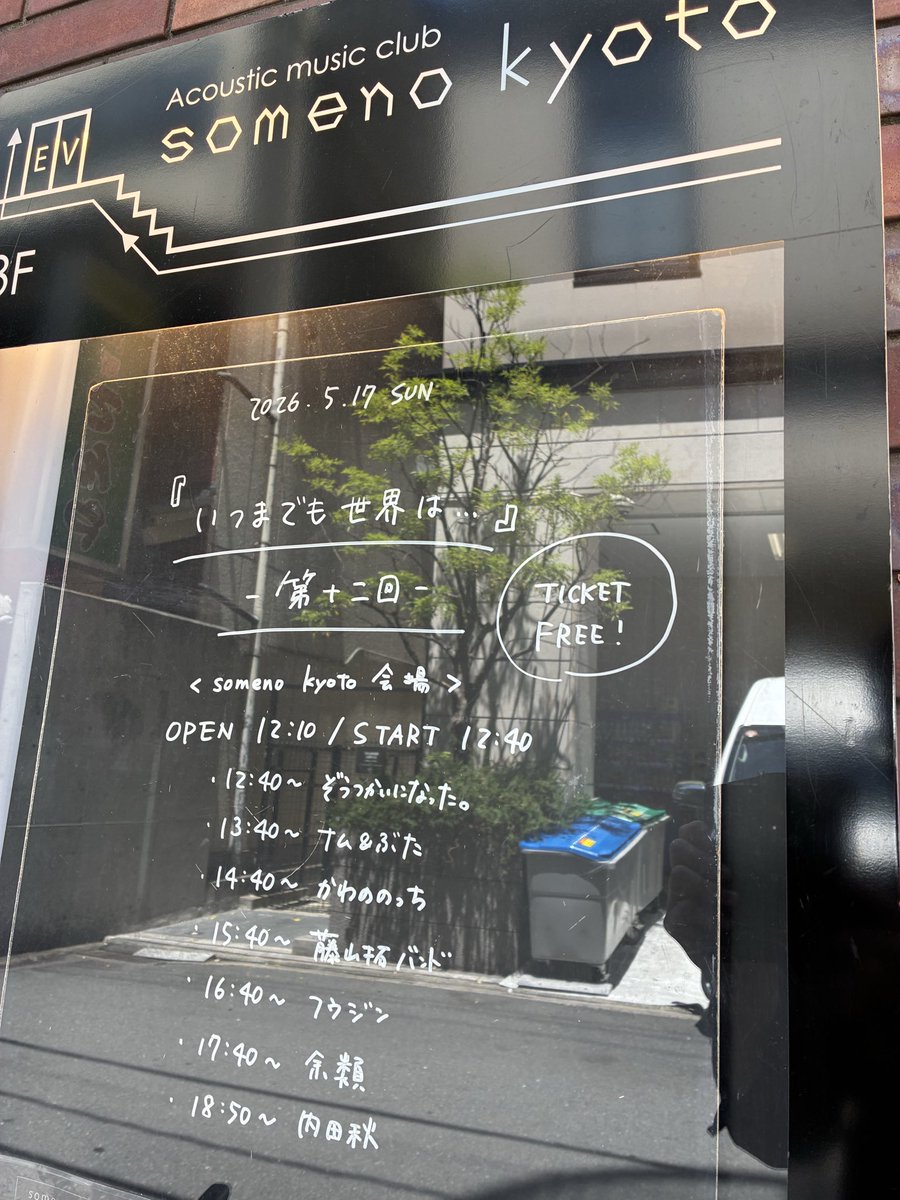 Acoustic music club
someno kyoto
EV
2026.5.17 SUN
『いつまでも世界は…』
-第十二回-
TICKET
FREE!
< someno kyoto 会場 >
OPEN 12:10 / START 12:40
・12:40〜 ぞうつかいになった。
・13:40〜 ナム&ぶた
・14:40〜 かわののっち
・15:40〜 藤山拓バンド
・16:40〜 フウジン
・17:40〜 余類
・18:50〜 内田秋